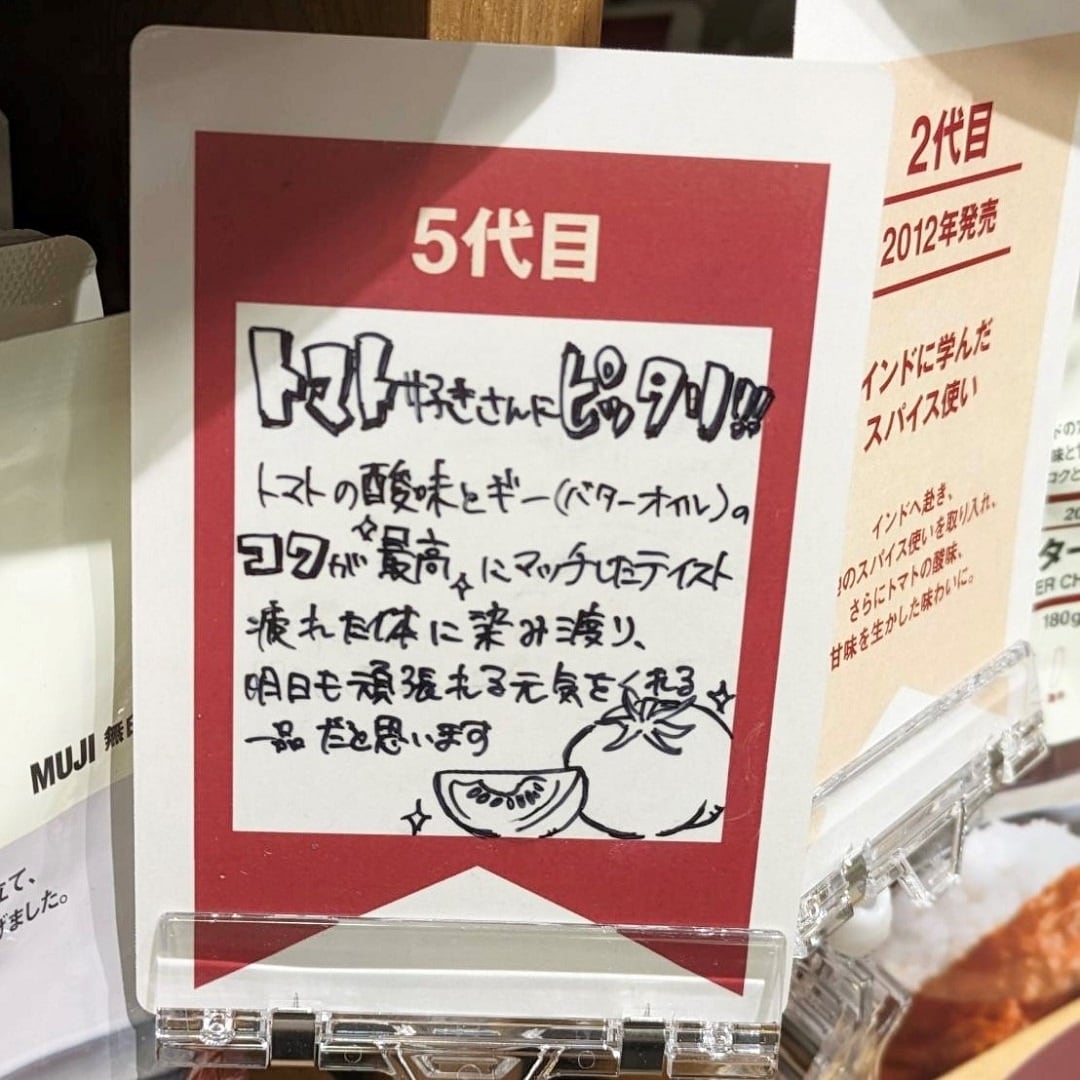 5代目
トマト好きさんにピッタリ!!
トマトの酸味とギー(バターオイル)の
コクが最高にマッチしたテイスト
疲れた体に染み渡り、
明日も頑張れる元気をくれる
一品だと思います
2代目
2012年発売
インドに学んだ
スパイス使い
インドへ赴き、
のスパイス使いを取り入れ、
さらにトマトの酸味、
甘味を生かした味わいに。
MUJI 無印
立て、
げました。
ドの
味と
コクと
20
ター
ER CH
180g